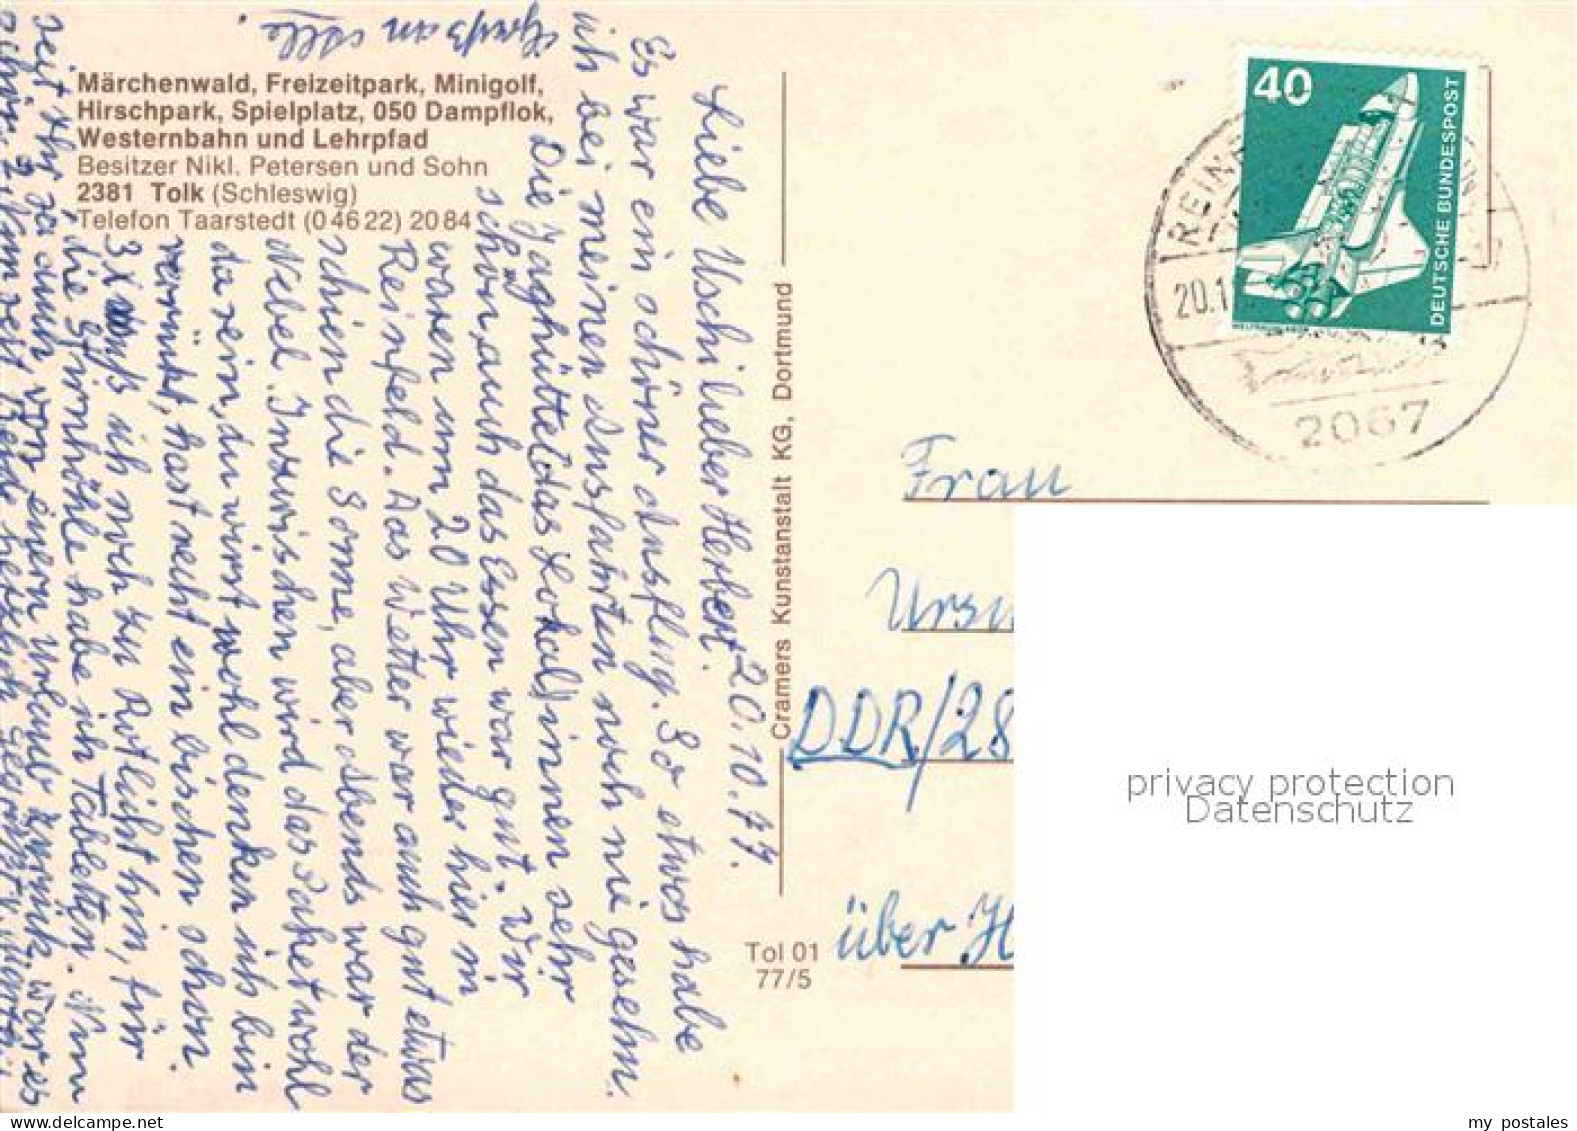 Märchenwald, Freizeitpark, Minigolf,
Hirschpark, Spielplatz, 050 Dampflok,
Westernbahn und Lehrpfad
Besitzer Nikl. Petersen und Sohn
2381 Tolk (Schleswig)
Telefon Taarstedt (0 46 22) 20 84
20.10.77.
Liebe Uschi lieber Herbert.
Es war ein schöner Ausflug. So etwas habe
ich bei meinen Ausfahrten noch nie gesehn.
Die Jaghütte (das Lokal) innen sehr
schön, auch das Essen war gut. Wir
waren um 20 Uhr wieder hier in
Reinfeld. Das Wetter war auch gut etwas
schien die Sonne, aber Abends war der
Nebel. Inzwischen wird das Paket wohl
da sein, du wirst wohl denken ich bin
verrückt, hast recht ein bischen schon.
3 x muß ich noch zu Rotlicht hin, für
die Stirnhöhle habe ich Tabletten. Nun
seit Ihr ja auch von euern Urlaub zurück. War es
schön? Nun seit Beide herzlich gegrüßt v. Mutti
Gruß an Alle.
Cramers Kunstanstalt KG, Dortmund
Tol 01
77/5
40
DEUTSCHE BUNDESPOST
REINF
20.1
2067
Frau
Ursu
DDR/28
über H
privacy protection
Datenschutz
my postales